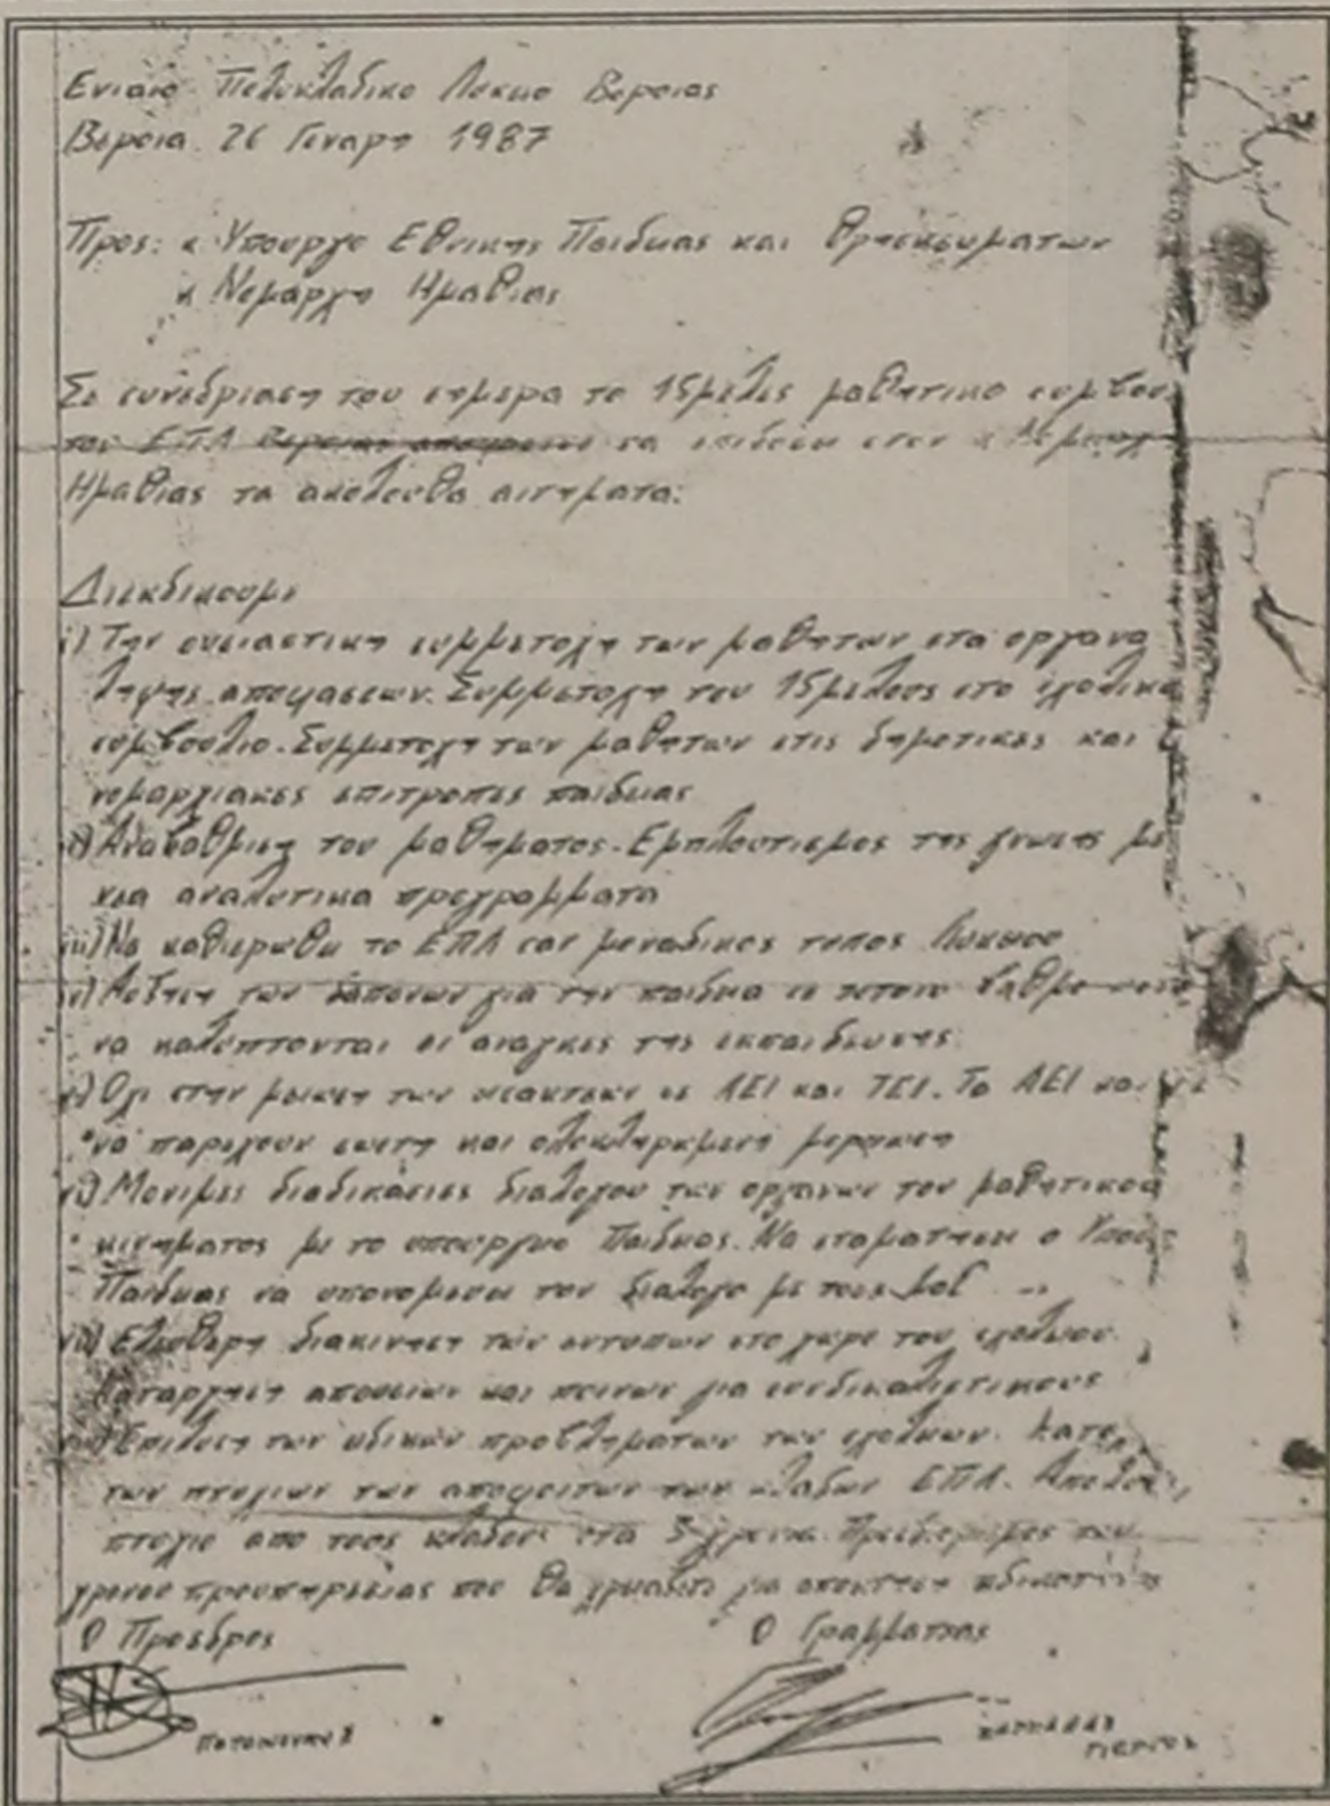 Ενιαιο Πολυκλαδικο Λυκειο Βεροιας
Βεροια 26 Γεναρη 1987
Προς: κ Υπουργο Εθνικης Παιδειας και Θρησκευματων
κ Νομαρχη Ημαθιας
Σε συνεδριαση του σημερα το 15μελες μαθητικο συμβου
του ΕΠΛ Βεροιας αποφασισε να επιδωσει στον κ Νομαρχ
Ημαθιας τα ακολουθα αιτηματα:
Διεκδικουμε
i) Την ουσιαστικη συμμετοχη των μαθητων στα οργανα
ληψης αποφασεων. Συμμετοχη του 15μελους στο σχολικο
συμβουλιο. Συμμετοχη των μαθητων στις δημοτικες και
νομαρχιακες επιτροπες παιδειας
ii) Αναβαθμιση του μαθηματος. Εμπλουτισμος της γνωσης με
νεα αναλυτικα προγραμματα
iii) Να καθιερωθει το ΕΠΛ σαν μοναδικος τυπος Λυκειου
iv) Αυξηση των δαπανων για την παιδεια σε τετοιο βαθμο
να καλυπτονται οι αναγκες της εκπαιδευσης.
v) Οχι στην μειωση των εισακτεων σε ΑΕΙ και ΤΕΙ. Τα ΑΕΙ και
να παρεχουν σωστη και ολοκληρωμενη μορφωση
vi) Μονιμες διαδικασιες διαλογου των οργανων του μαθητικου
κινηματος με το υπουργειο Παιδειας. Να σταματησει ο Υπου
Παιδειας να υπονομευει τον διαλογο με τους μαθ
vii) Ελευθερη διακινηση των εντυπων στο χωρο του σχολειου.
Καταργηση απουσιων και ποινων για συνδικαλιστικους
viii) Επιλυση των ειδικων προβληματων των σχολειων. Κατο
των πτυχιων των αποφοιτων των κλαδων ΕΠΛ.
πτυχιο απο τους κλαδους στα 3 χρονια. Προσδιορισμος του
χρονου προυπηρεσιας που θα χρειαζεται για αποκτηση
Ο Προεδρος
Ο Γραμματεας